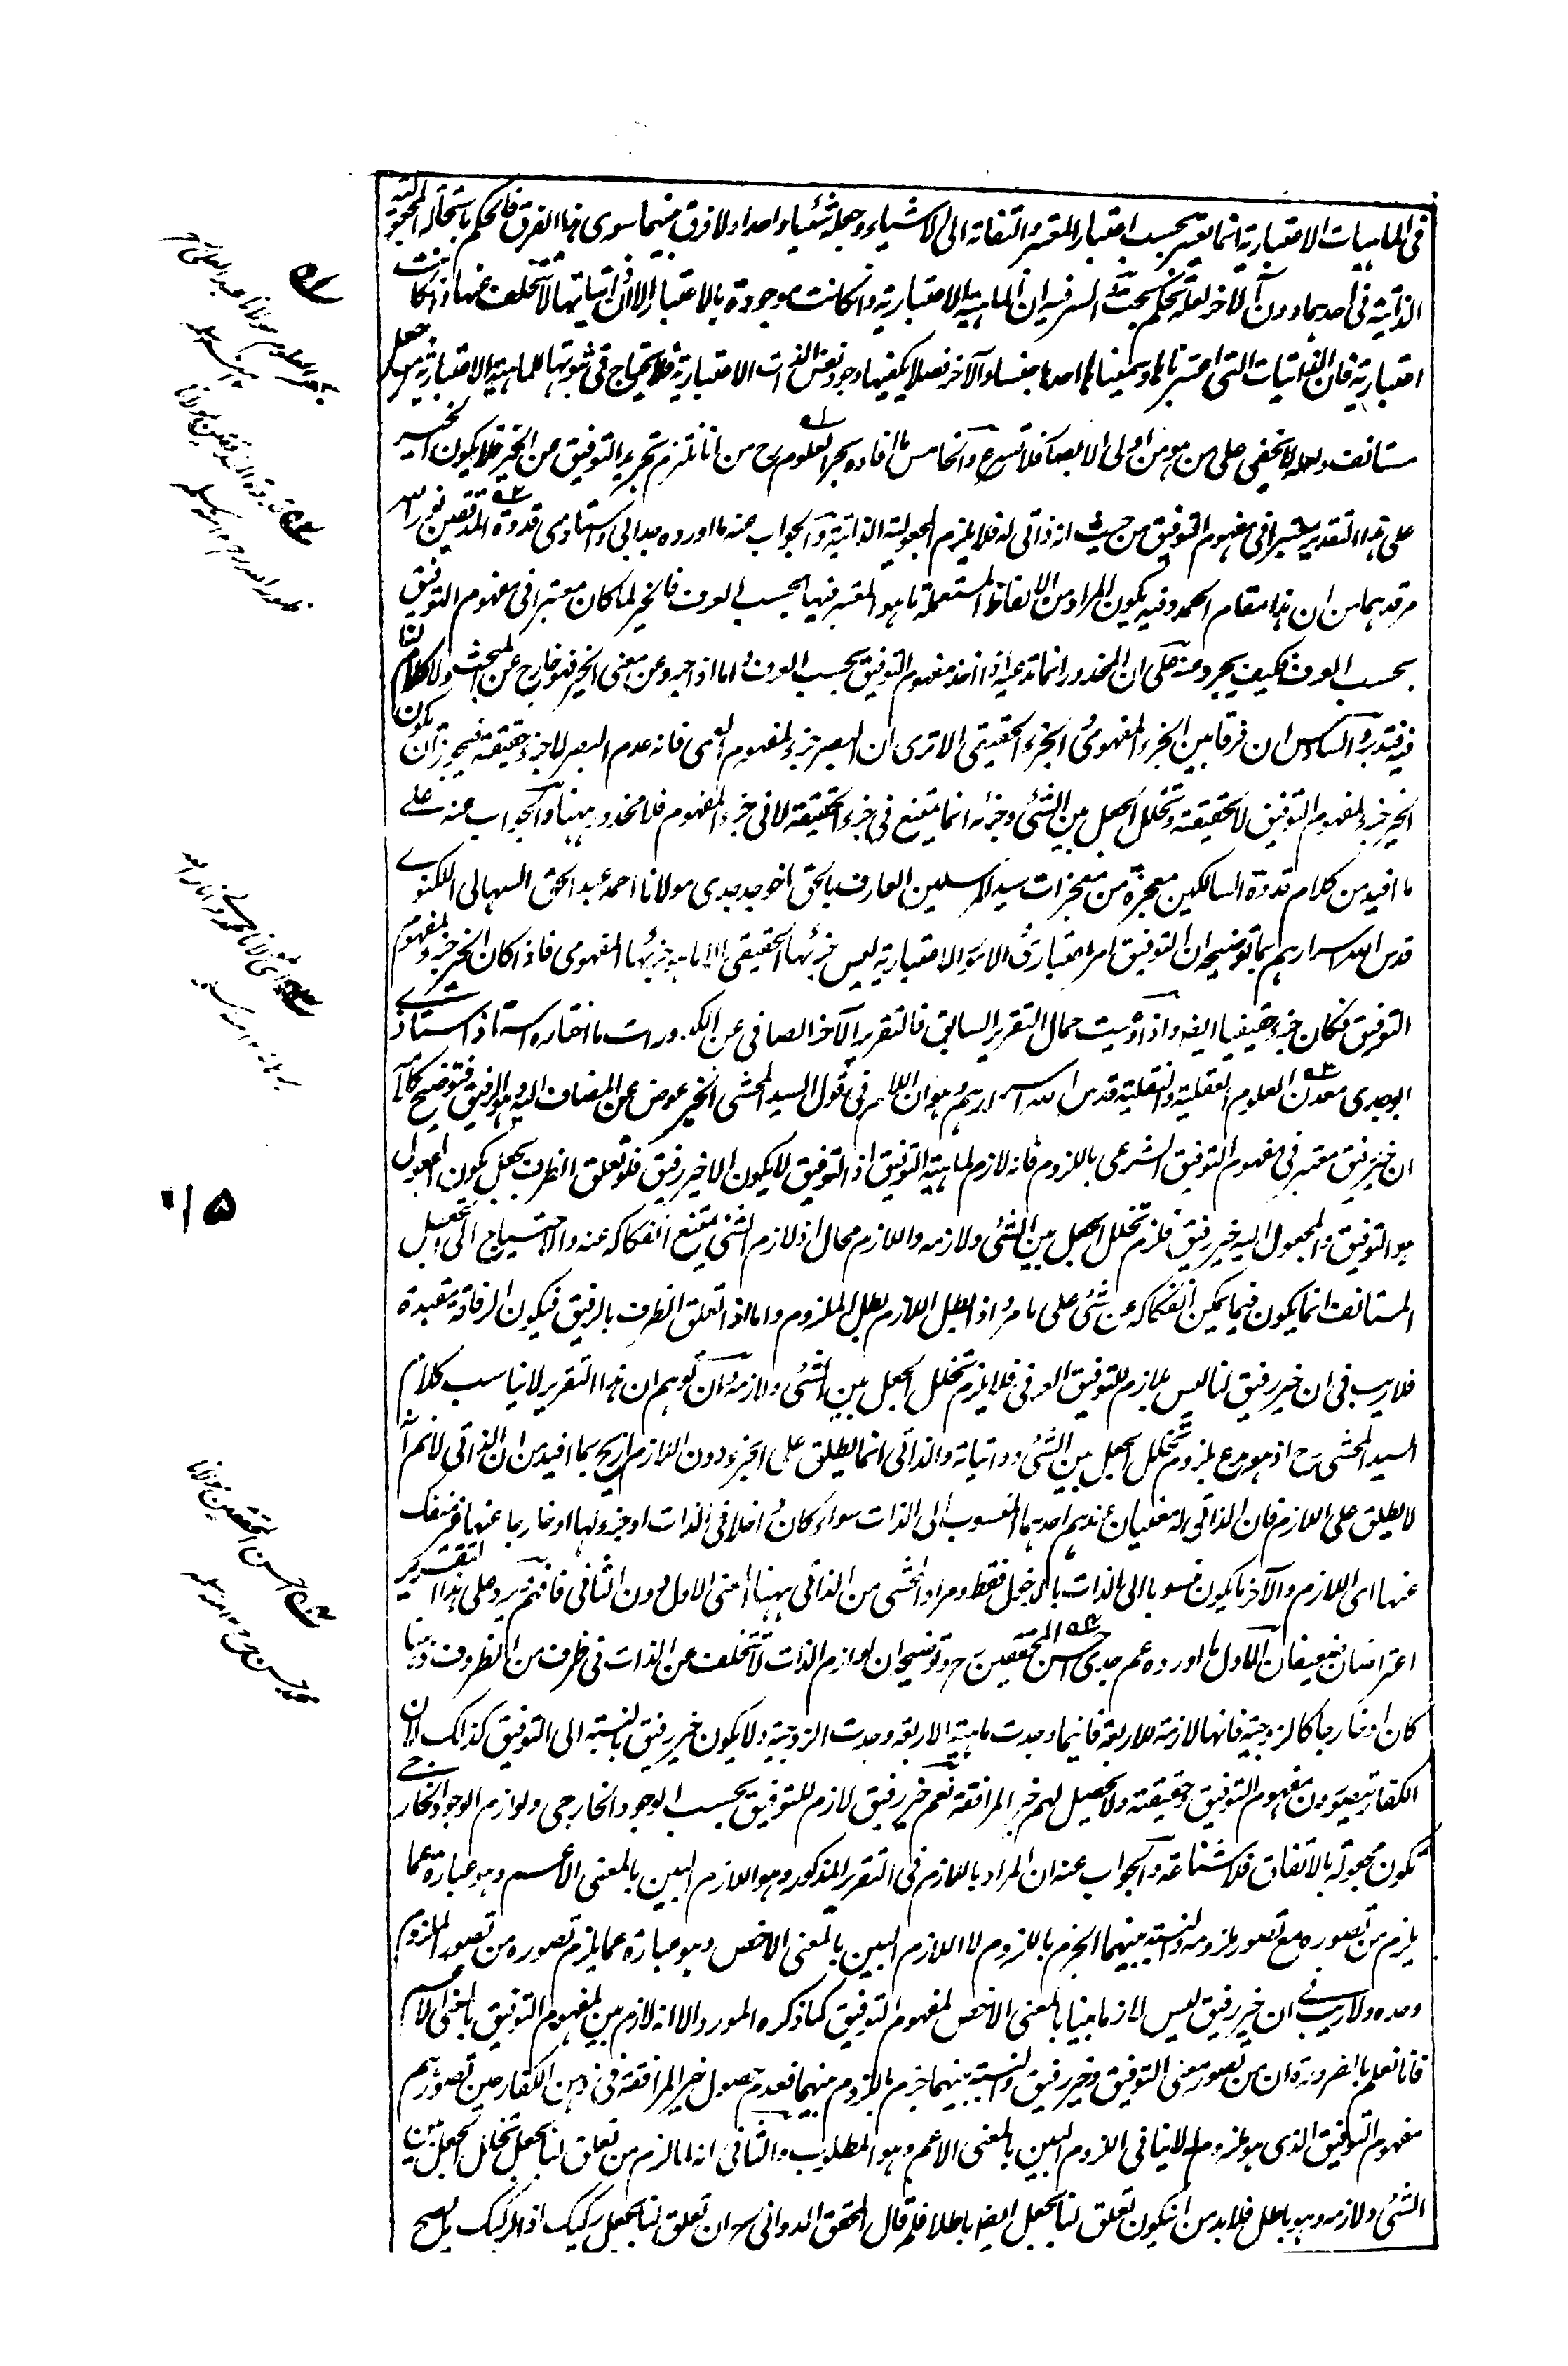 فى الماهيات الاعتبارية انما يعتبر بحسب اعتبار المعتبر والتفاته الى الاشياء وجعله شيئا واحدا ولا فرق بينهما سوى هذا الفرق فالحكم باستحالة المجعولية
الذاتية فى احدهما دون الآخر لعله تحكم بحت السر فيه ان الماهية الاعتبارية وانكانت موجودة بالاعتبار الا ان ذاتياتها لا تتخلف عنها اذا كانت
اعتبارية فان الذاتيات التى اعتبرناها وسمينا احدها جنسا والآخر فصلا يكفيها وجود نفس الذات الاعتبارية فلا تحتاج فى ثبوتها للماهية الاعتبارية من جعل
مستانف ولعله لا يخفى على من هو من اولى الابصار فلا تسرع والخامس ما افاده بحر العلوم رح من انا نلتزم تجريد التوفيق عن الخير فلا يكون الخير
على هذا التقدير معتبرا فى مفهوم التوفيق من حيث انه ذاتى له فلا يلزم المجعولية الذاتية والجواب عنه ما اورده جد ابى واستاذى قدوة المدققين نور الله
مرقدهما من ان هذا مقام الحمد وفيه يكون المراد من الالفاظ المستعملة ما هو المعتبر فيها بحسب العرف فالخير لما كان معتبرا فى مفهوم التوفيق
بحسب العرف فكيف يجرد عنه على ان المحذور انما ندعيه اذا اخذ مفهوم التوفيق بحسب العرف واما اذا جرد عن معنى الخير فهو خارج عن المبحث ولا كلام لنا
فيه فتدبر والسادس ان فرقا بين الجزء المفهومى والجزء الحقيقى الا ترى ان البصر جزء لمفهوم العمى فانه عدم البصر لا جزء حقيقته فيجوز ان يكون
الخير جزء لمفهوم التوفيق لا لحقيقته وتخلل الجعل بين الشئ وجزئه انما يمتنع فى جزء الحقيقة لا فى جزء المفهوم فلا محذور ههنا والجواب عنه على
ما افيد من كلام قدوة السالكين معجزة من معجزات سيد المرسلين العارف بالحق اخو جد جدى مولانا احمد عبد الحق السهالى اللكنوى
قدس الله اسرارهم بما توضيحه ان التوفيق امر اعتبارى والامور الاعتبارية ليس جزئها الحقيقى الا ما هو جزئها المفهومى فاذا كان الخير جزء لمفهوم
التوفيق فكان جزء حقيقيا ايضا واذا رأيت حال التقرير السابق فالتقرير الآخر الصافى عن الكدورات ما اختاره استاذ استاذى
ابو جدى معدن العلوم العقلية والنقلية قدس الله اسرارهم وهو ان اللام فى قول السيد المحشى الخير عوض عن المضاف اليه وهو الرفيق فتوضيح كلامه
ان خير رفيق معتبر فى مفهوم التوفيق الشرعى باللزوم فانه لازم لماهية التوفيق اذ التوفيق لا يكون الا خير رفيق فلو تعلق الظرف بجعل يكون المجعول
هو التوفيق والمجعول اليه خير رفيق فلزم تخلل الجعل بين الشئ ولازمه واللازم محال اذ لازم الشئ يمتنع انفكاكه عنه والاحتياج الى الجعل
المستانف انما يكون فيما يمكن انفكاكه عن شئ على ما مر واذا بطل اللازم بطل الملزوم واما اذا تعلق الظرف بالرفيق فيكون الرفاقة مقيدة
فلا ريب فى ان خير رفيق لنا ليس بلازم للتوفيق العرفى فلا يلزم تخلل الجعل بين الشئ ولازمه وان توهم ان هذا التقرير لا يناسب كلام
السيد المحشى رح اذ هو مدع بلزوم تخلل الجعل بين الشئ وذاتياته والذاتى انما يطلق على الجزء دون اللازم ازيح بما افيد من ان الذاتى لا نم انه
لا يطلق على اللازم فان الذاتى له معنيان عندهم احدهما المنسوب الى الذات سواء كان داخلا فى الذات او جزء لها او خارجا عنها غير منفك
عنها اى اللازم والآخر ما يكون منسوبا الى الذات بالدخول فقط ومراد المحشى من الذاتى ههنا المعنى الاول دون الثانى فافهم يرد على هذا التقرير
اعتراضان ضعيفان الاول ما اورده عم جدى احسن المحققين رح وتوضيحه ان لوازم الذات لا تتخلف عن الذات فى ظرف من الظروف ذهنا
كان او خارجا كالزوجية فانها لازمة للاربعة فاينما وجدت ماهية الاربعة وجدت الزوجية ولا يكون خير رفيق بالنسبة الى التوفيق كذلك لان
الكفار يتصورون مفهوم التوفيق وحقيقته ولا يحصل لهم خير المرافقة نعم خير رفيق لازم للتوفيق بحسب الوجود الخارجى ولوازم الوجود الخارجى
تكون مجعولة بالاتفاق فلا شناعة والجواب عنه ان المراد باللازم فى التقرير المذكور هو اللازم البين بالمعنى الاعم وهو عبارة عما
يلزم من تصوره مع تصور ملزومه والنسبة بينهما الجزم باللزوم لا اللازم البين بالمعنى الاخص وهو عبارة عما يلزم تصوره من تصور الملزوم
وحده ولا ريب فى ان خير رفيق ليس لازما بينا بالمعنى الاخص لمفهوم التوفيق كما ذكره المورد الا انه لازم بين لمفهوم التوفيق بالمعنى الاعم
فانا نعلم بالضرورة ان من تصور معنى التوفيق وخير رفيق والنسبة بينهما جزم باللزوم بينهما فعدم حصول خير المرافقة فى ذهن الكفار حين تصورهم
مفهوم التوفيق الذى هو ملزوم له لا ينافى اللزوم البين بالمعنى الاعم وهو المطلوب والثانى انه لما لزم من تعلق لنا بجعل تخلل الجعل بين
الشئ ولازمه وهو باطل فلا بد من ان يكون تعلق لنا بجعل ايضا باطلا فلم قال المحقق الدوانى رح ان تعلق لنا بجعل ركيك اذ الركيك يصح
بحر العلوم مولانا عبد العلى رح
منه سلمه
قدوة المدققين مولانا
ظهور الله رح ١٢ منه سلمه
١٥
احسن المحققين مولانا
محمد حسن رح ١٢ منه سلمه